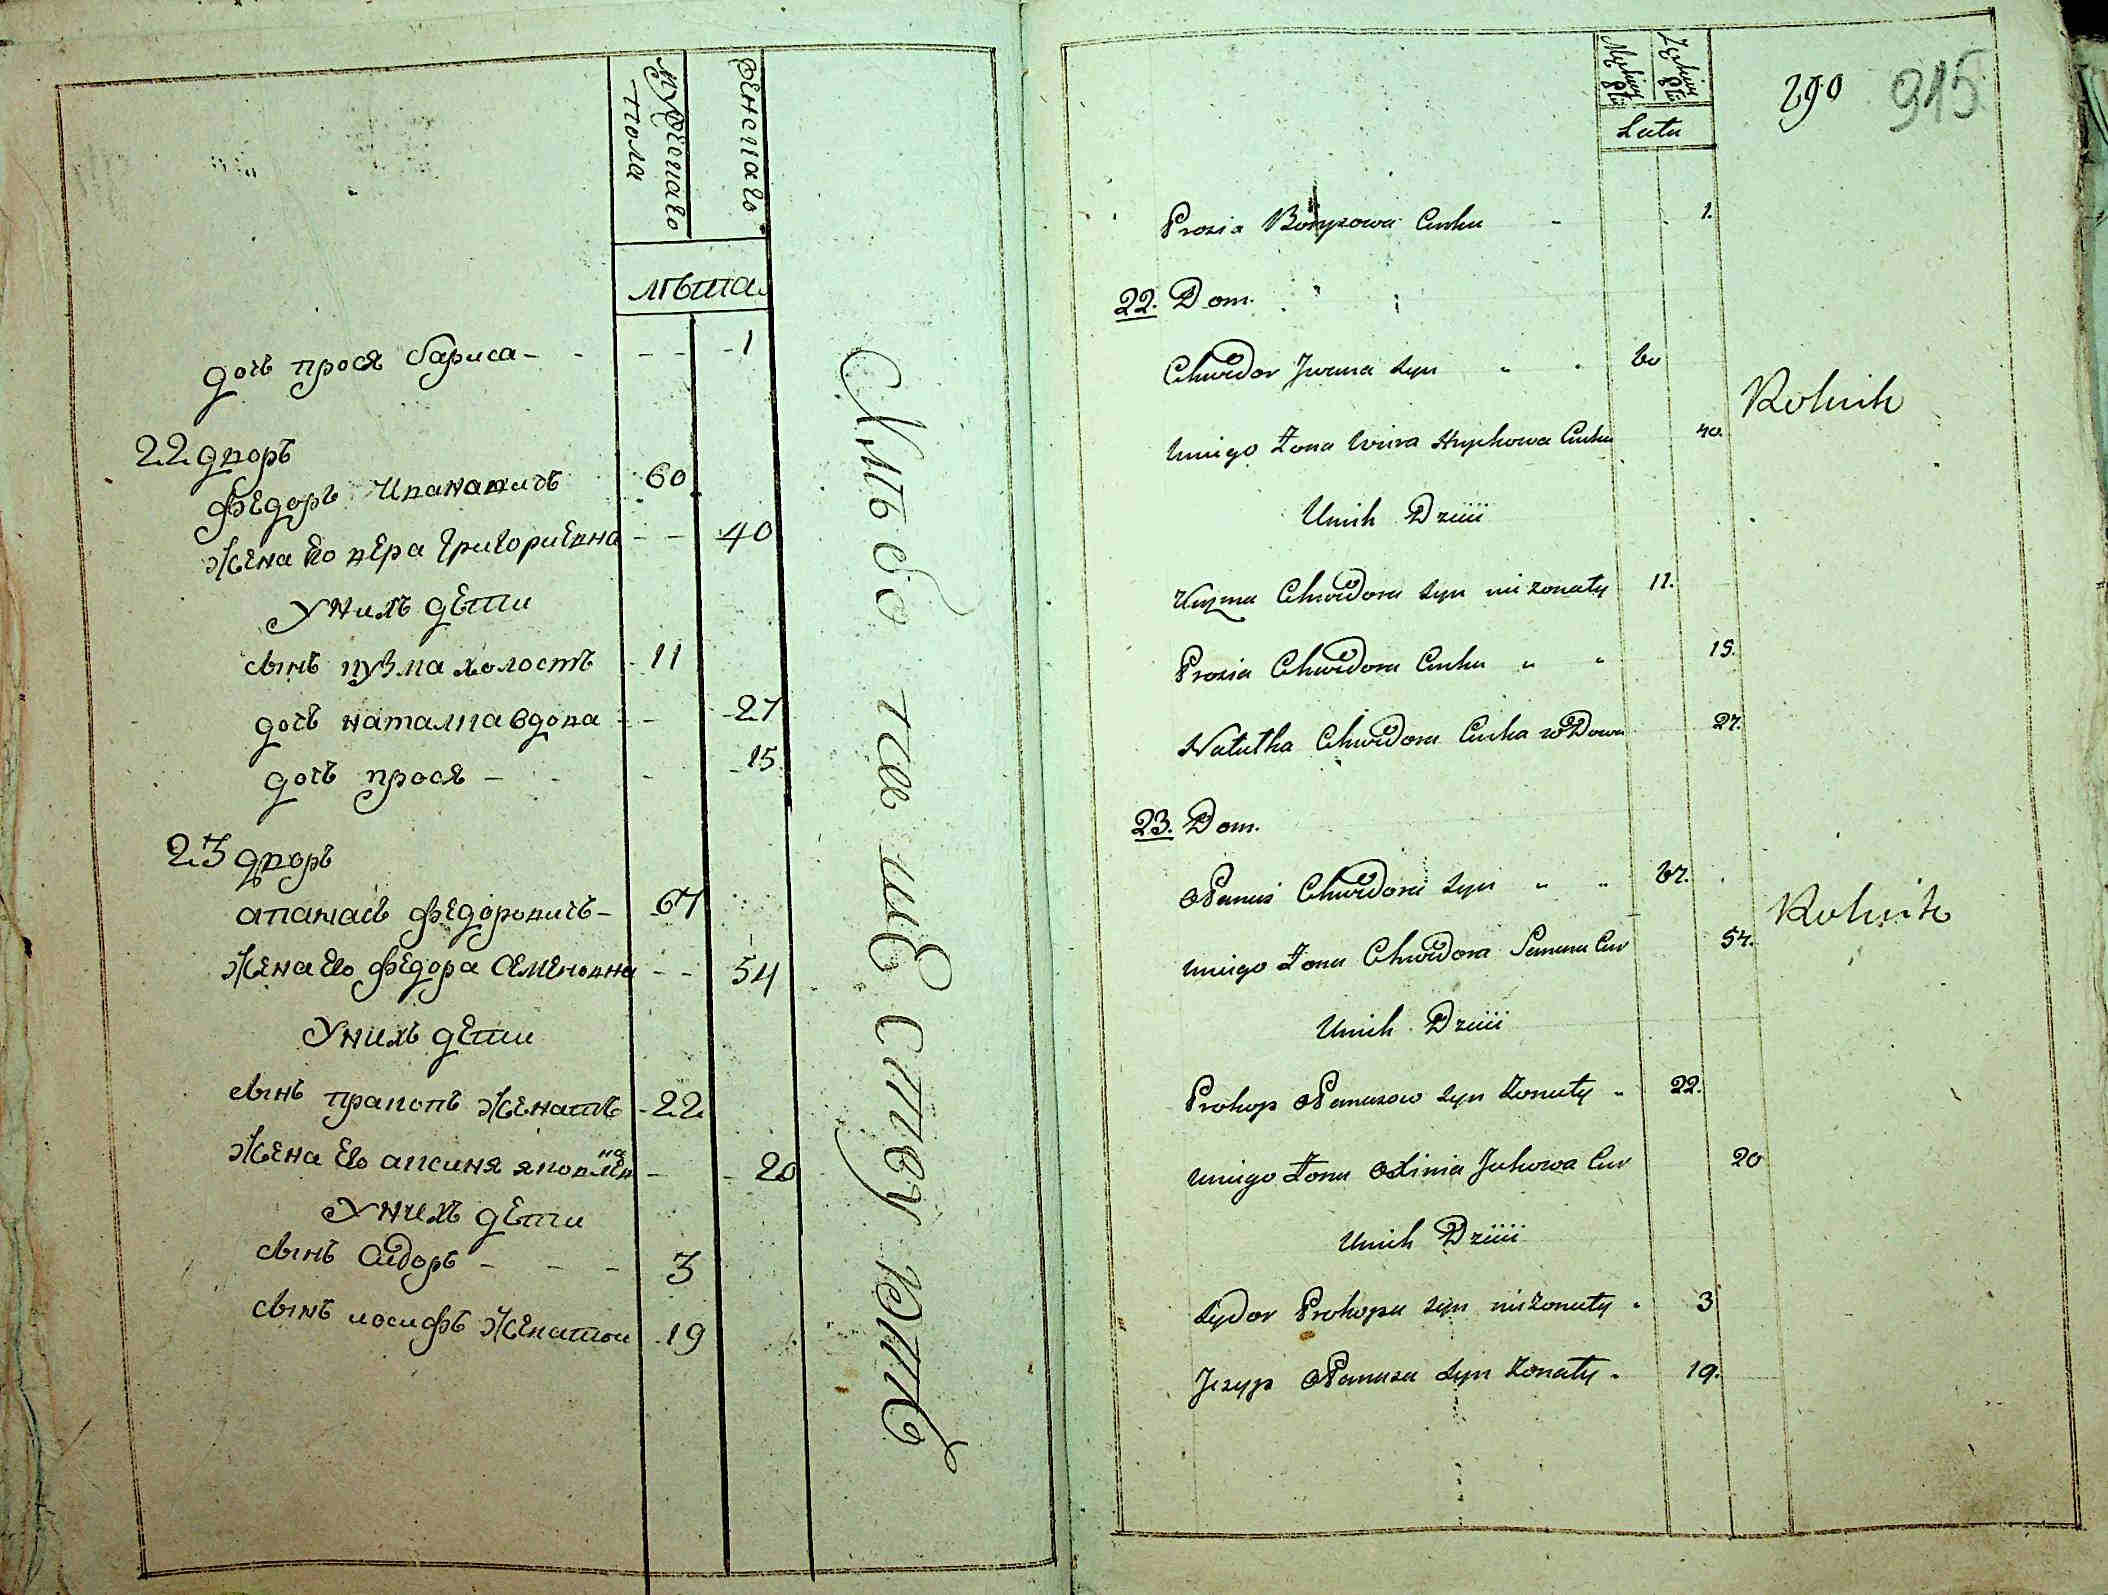 мужескаго
пола
женскаго
лѣта
дочь прося бариса - - - - - 1
22 дворъ
Федоръ Ивановичъ 60
жена его вера григориевна - - 40
У них детти
сынъ кузма холостъ 11
дочь наталка вдова - - 27
дочь прося - - - 15
23 дворъ
апанасъ федоровичъ - 67
жена его федора семеновна - - 54
У них дети
сынъ пракопъ женатъ - 22
жена его аксиня яковлевна - - 20
У них дети
сынъ Сидоръ - - - 3
сынъ иосифъ женатои 19
Хлѣбопашеству
Męzkiey płci
Żeńskiey płci
Lata
290
915
Prosia Borysowa Curka - 1.
22. Dom.
Chwedor Jwana syn " . 60
Rolnik
Uniego Żona Wiera Hryckowa Curka 40.
Unich Dzieii
Kuzma Chwedora syn nieżonaty 11.
Prosia Chwedora Curka " " 15.
Natutka Chwedora Curka wDowa 27.
23. Dom.
Apanas Chwedora syn " " 67.
Rolnik
Uniego Żona Chwedora Semena Cur 54.
Unich Dzieii
Prokop Apanasow syn Żonaty " 22.
Uniego Żona Axinia Jakowa Cur 20
Unich Dzieii
Sydor Prokopa syn nieżonaty " 3
Jezyp Apanasa syn Żonaty . 19.